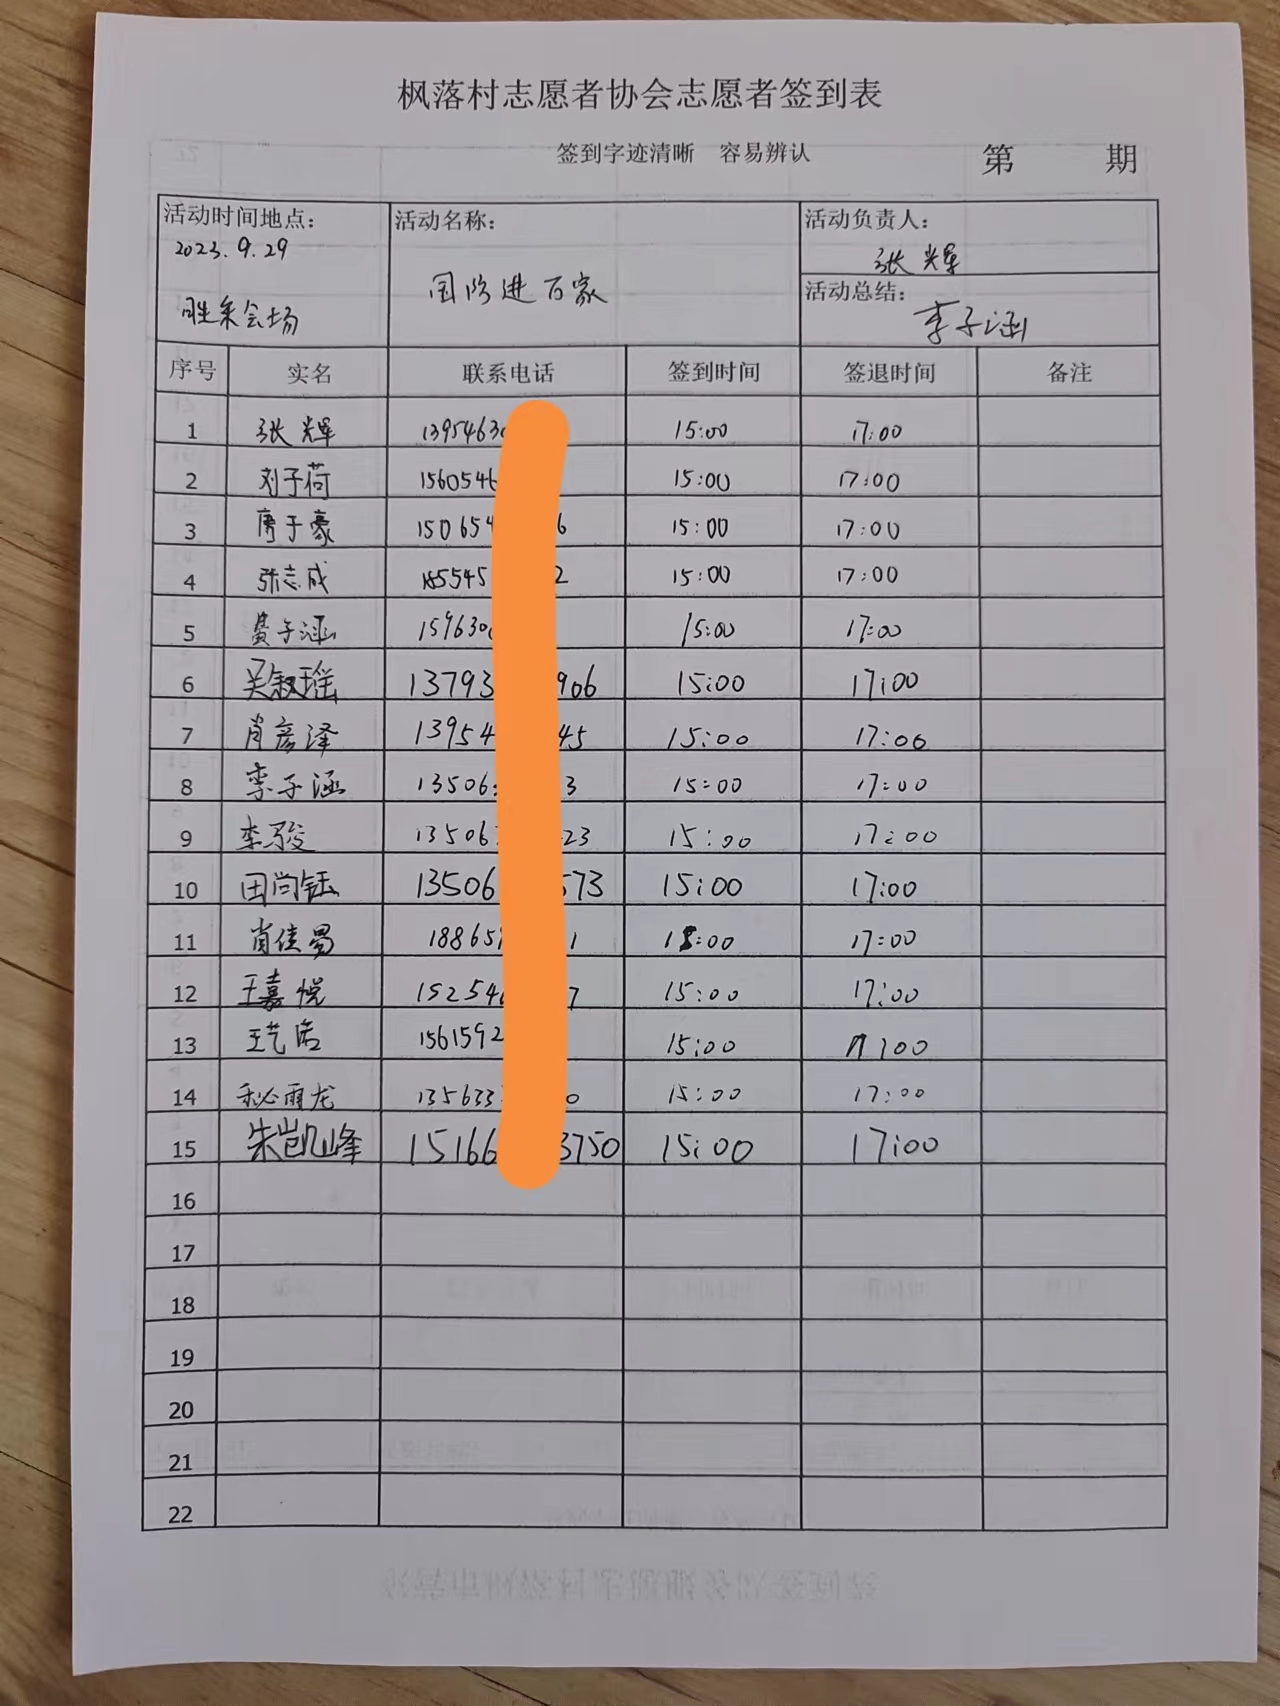 枫落村志愿者协会志愿者签到表
签到字迹清晰 容易辨认
第 期
活动时间地点: 活动名称: 活动负责人:
2023.9.29 张辉
国防进百家
活动总结:
会场 李子涵
序号 实名 联系电话 签到时间 签退时间 备注
1 张辉 1395463 15:00 17:00
2 刘子荷 1560546 15:00 17:00
3 唐于豪 150654 6 15:00 17:00
4 张志成 185545 2 15:00 17:00
5 费子涵 159630 15:00 17:00
6 吴叙瑶 13793 906 15:00 17:00
7 肖彦泽 13954 45 15:00 17:00
8 李子涵 13506 3 15:00 17:00
9 李骏 13506 23 15:00 17:00
10 田尚钰 13506 573 15:00 17:00
11 肖佳易 18865 1 15:00 17:00
12 王嘉悦 15254 7 15:00 17:00
13 王艺诺 1561592 15:00 17:00
14 秘雨龙 135633 0 15:00 17:00
15 朱凯峰 15166 3750 15:00 17:00
16
17
18
19
20
21
22